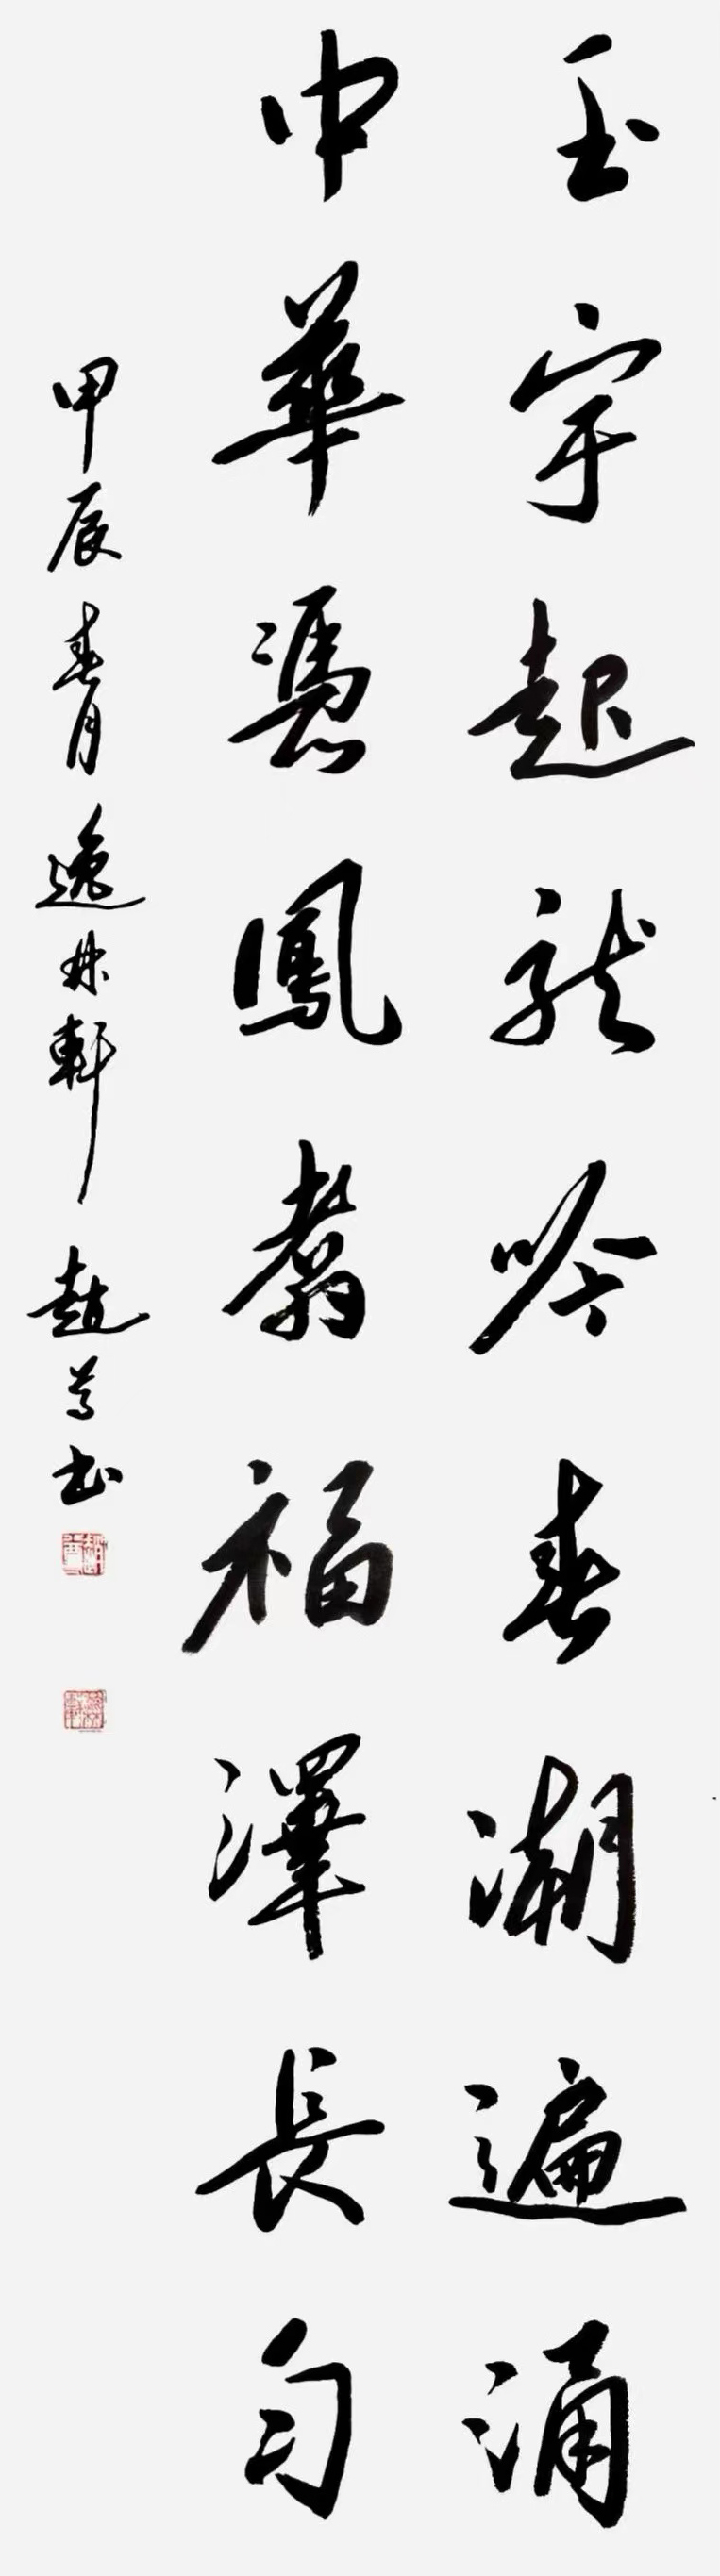 玉宇起龍吟春潮遍涌
中華憑鳳翥福澤長勻
甲辰春月逸林軒趙書